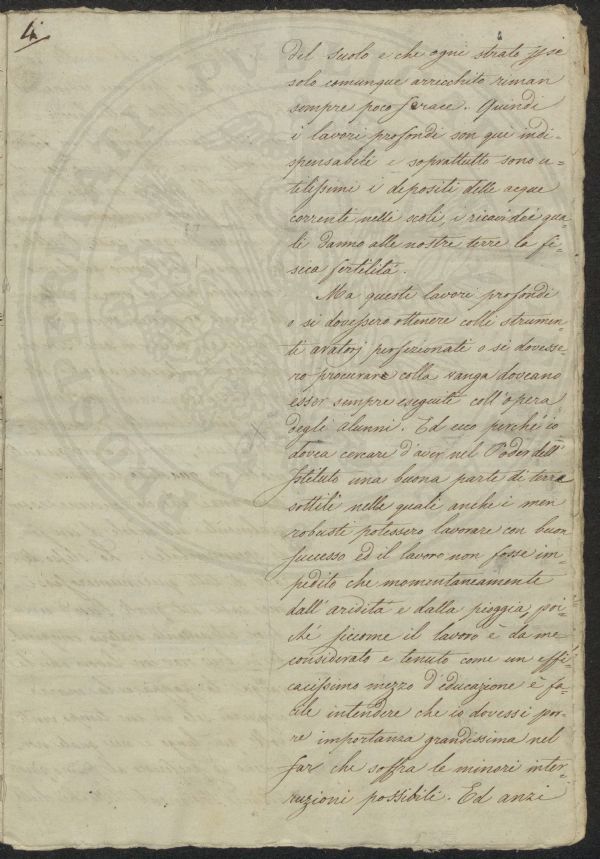 4.
del suolo e che ogni strato per se
solo comunque arricchito riman
sempre poco ferace. Quindi
i lavori profondi son qui indi-
spensabili e soprattutto sono u-
tilissimi i depositi delle acque
correnti nelle scoli, i ricavi dei qua-
li danno alle nostre terre la fi-
sica fertilità.
Ma questi lavori profondi
o si dovessero ottenere colli strumen-
ti aratorj perfezionati o si dovesse-
ro procurare colla vanga doveano
esser sempre eseguiti coll'opera
degli alunni. Ed ecco perchè io
dovea cercare d'aver nel Poder dell'
Istituto una buona parte di terre
sottili nelle quali anche i men
robusti potessero lavorare con buon
successo ed il lavoro non fosse im-
pedito che momentaneamente
dall'aridità e dalla pioggia, poi-
ché siccome il lavoro è da me
considerato e tenuto come un effi-
cacissimo mezzo d'educazione è fa-
cile intendere che io dovessi por-
re importanza grandissima nel
far che soffra le minori inter-
ruzioni possibili. Ed anzi